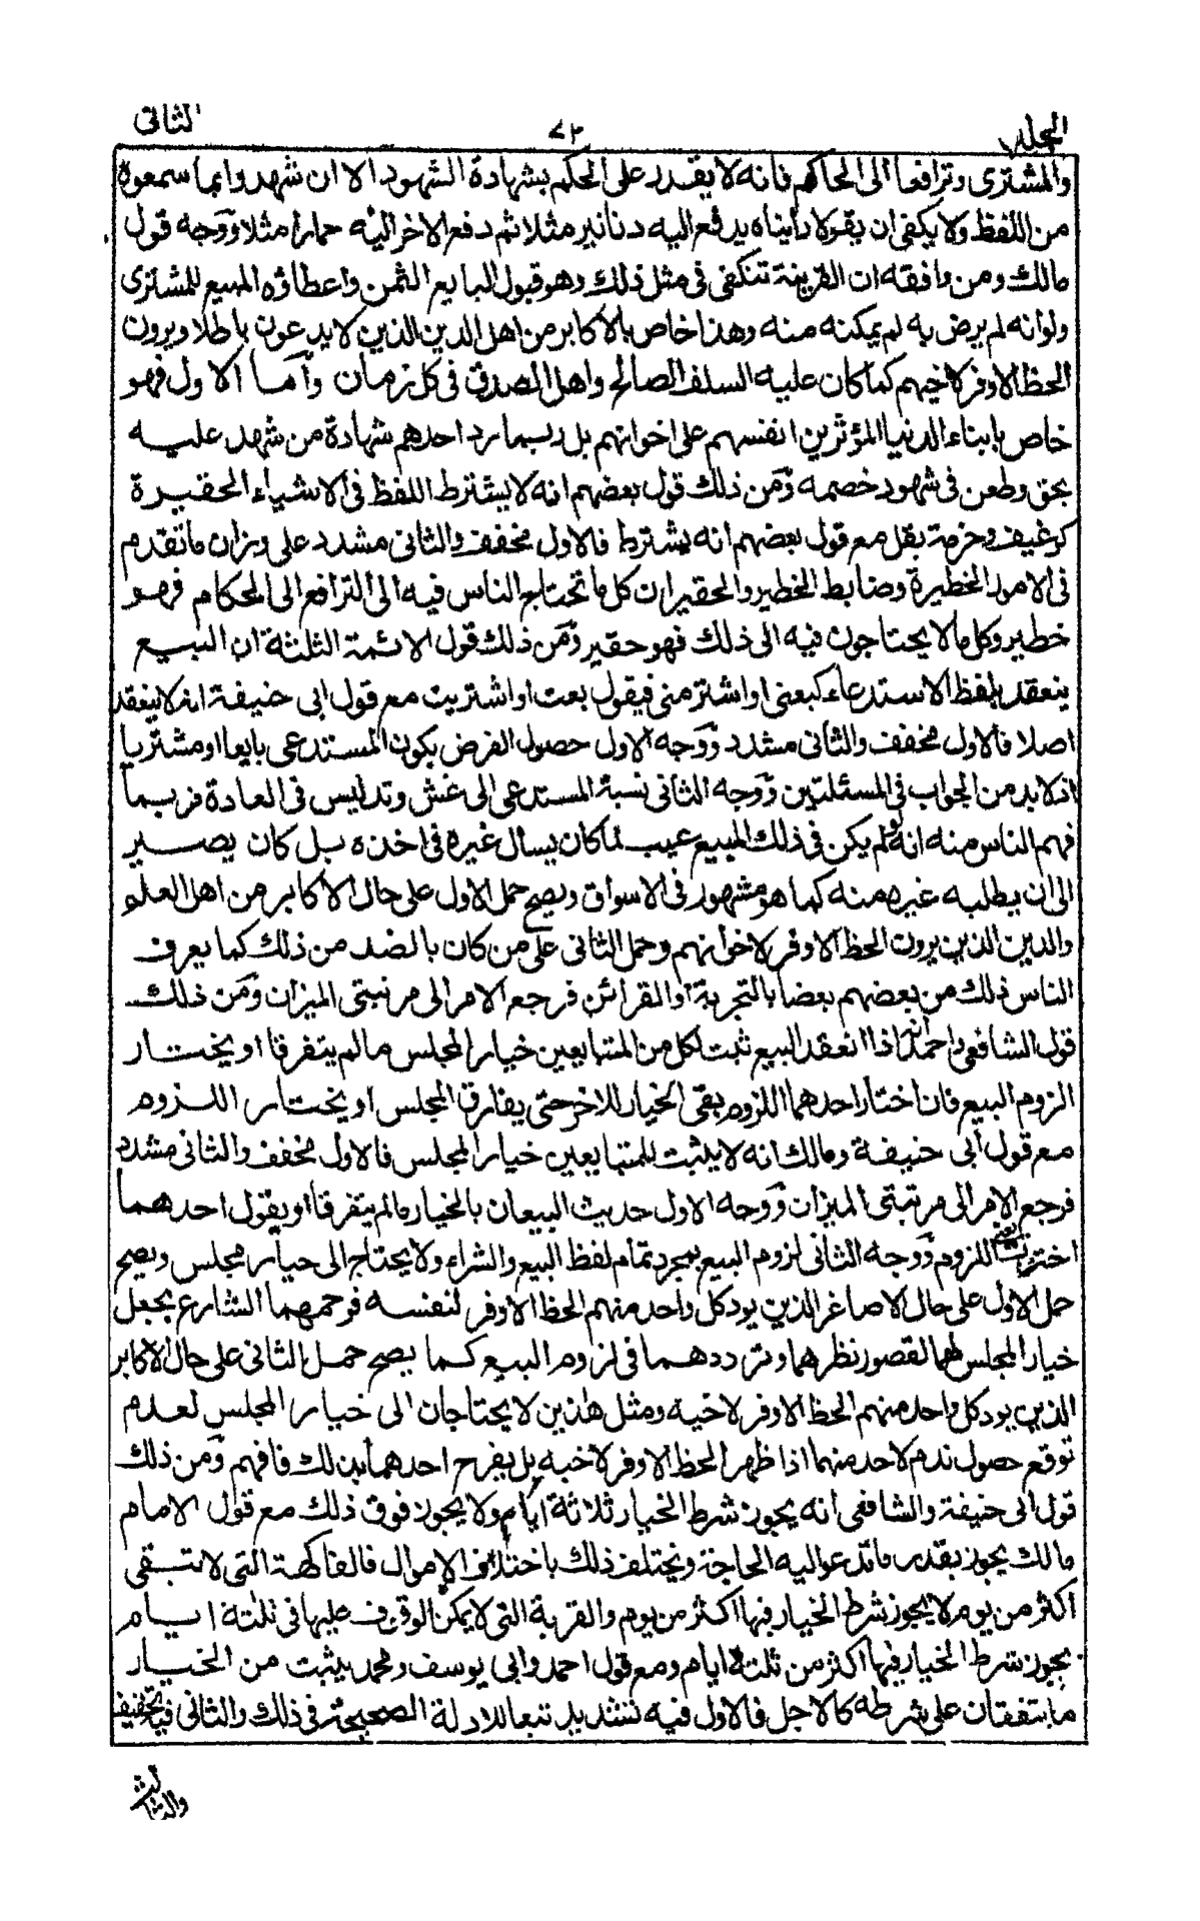 المجلد
٧٣
الثاني
والمشترى وترافعا الى الحاكم فانه لا يقدر على الحكم بشهادة الشهود الا ان شهدوا بما سمعوه
من اللفظ ولا يكفى ان يقولا رأيناه يدفع اليه دنانير مثلا ثم دفع الاخر اليه حمارا مثلا ووجه قول
مالك ومن وافقه ان القرينة تكفى فى مثل ذلك وهو قبول البايع الثمن واعطاؤه المبيع للمشترى
ولو انه لم يرض به لم يمكنه منه وهذا خاص بالاكابر من اهل الدين الذين لا يدعون باطلا ويرون
الحظ الاوفر لاخيهم كما كان عليه السلف الصالح واهل الصدق فى كل زمان وأما الاول فهو
خاص بابناء الدنيا المؤثرين انفسهم على اخوانهم بل ربما رد احدهم شهادة من شهد عليه
بحق وطعن فى شهود خصمه ومن ذلك قول بعضهم انه لا يشترط اللفظ فى الاشياء الحقيرة
كرغيف وحزمة بقل مع قول بعضهم انه يشترط فالاول مخفف والثانى مشدد على وزان ما تقدم
فى الامور الخطيرة وضابط الخطير والحقير ان كل ما تحتاج الناس فيه الى الترافع الى الحكام فهو
خطير وكل ما لا يحتاجون فيه الى ذلك فهو حقير ومن ذلك قول الائمة الثلثة ان البيع
ينعقد بلفظ الاستدعاء كبعنى او اشتر منى فيقول بعت او اشتريت مع قول ابى حنيفة انه لا ينعقد
اصلا فالاول مخفف والثانى مشدد ووجه الاول حصول الغرض بكون المستدعى بايعا او مشتريا
اذ لا بد من الجواب فى المسئلتين ووجه الثانى نسبة المستدعى الى غش وتدليس فى العادة فربما
فهم الناس منه انه لو لم يكن فى ذلك المبيع عيب لما كان يسأل غيره فى اخذه بل كان يصير
الى ان يطلبه غيره منه كما هو مشهور فى الاسواق ويصح حمل الاول على حال الاكابر من اهل العلم
والدين الذين يرون الحظ الاوفر لاخوانهم وحمل الثانى على من كان بالضد من ذلك كما يعرف
الناس ذلك من بعضهم بعضا بالتجربة او القرائن فرجع الامر الى مرتبتى الميزان ومن ذلك
قول الشافعى واحمد انه اذا انعقد البيع ثبت لكل من المتبايعين خيار المجلس ما لم يتفرقا او يختار
الزوم البيع فان اختار احدهما اللزوم بقى الخيار للاخر حتى يفارق المجلس او يختار اللزوم
مع قول أبى حنيفة ومالك انه لا يثبت للمتبايعين خيار المجلس فالاول مخفف والثانى مشدد
فرجع الامر الى مرتبتى الميزان ووجه الاول حديث البيعان بالخيار ما لم يتفرقا او يقول احدهما
اخترت اللزوم ووجه الثانى لزوم البيع بمجرد تمام لفظ البيع والشراء ولا يحتاج الى خيار مجلس ويصح
حمل الاول على حال الاصاغر الذين يود كل واحد منهم الحظ الاوفر لنفسه فرحمهما الشارع بجعل
خيار المجلس لهما لقصور نظرهما وترددهما فى لزوم البيع كما يصح حمل الثانى على حال الاكابر
الذين يود كل واحد منهم الحظ الاوفر لاخيه ومثل هاذين لا يحتاجان الى خيار المجلس لعدم
توقع حصول ندم لاحد منهما اذا ظهر الحظ الاوفر لاخيه بل يفرح احدهما بذلك فافهم ومن ذلك
قول ابى حنيفة والشافعى انه يجوز شرط الخيار ثلاثة أيام ولا يجوز فوق ذلك مع قول الامام
مالك يجوز بقدر ما تدعو اليه الحاجة ويختلف ذلك باختلاف الاموال فالفاكهة التى لا تبقى
اكثر من يوم لا يجوز شرط الخيار فيها اكثر من يوم والقرية التى لا يمكن الوقوف عليها فى ثلثة ايام
يجوز شرط الخيار فيها اكثر من ثلثة ايام ومع قول احمد وابى يوسف ومحمد يثبت من الخيار
ما يتفقان على شرطه كالاجل فالاول فيه تشديد تبعا للادلة الصحيحة فى ذلك والثانى فيه تخفيف
والثالث